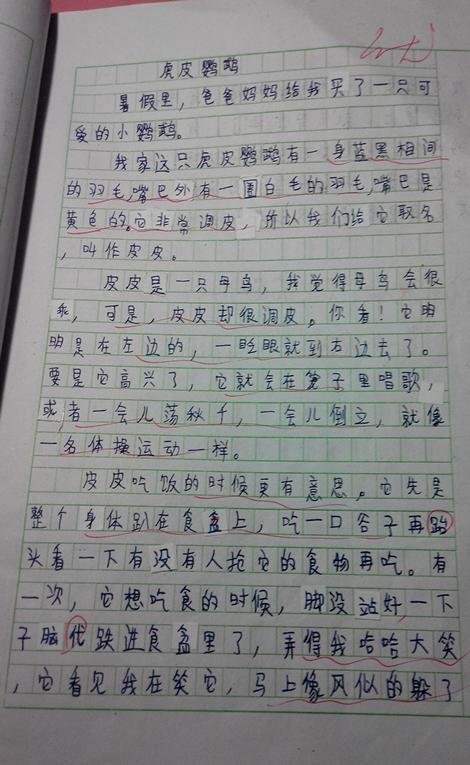 虎皮鹦鹉
暑假里，爸爸妈妈给我买了一只可
爱的小鹦鹉。
我家这只虎皮鹦鹉有一身蓝黑相间
的羽毛,嘴巴外有一圈白毛的羽毛,嘴巴是
黄色的。它非常调皮，所以我们给它取名
，叫作皮皮。
皮皮是一只母鸟，我觉得母鸟会很
乖，可是，皮皮却很调皮。你看！它明
明是在左边的，一眨眼就到右边去了。
要是它高兴了，它就会在笼子里唱歌，
或者一会儿荡秋千，一会儿倒立，就像
一名体操运动一样。
皮皮吃饭的时候更有意思。它先是
整个身体趴在食盒上，吃一口谷子再跆
头看一下有没有人抢它的食物再吃。有
一次，它想吃食的时候，脚没站好，一下
子脑代跌进食盒里了，弄得我哈哈大笑
，它看见我在笑它，马上像风似的躲了